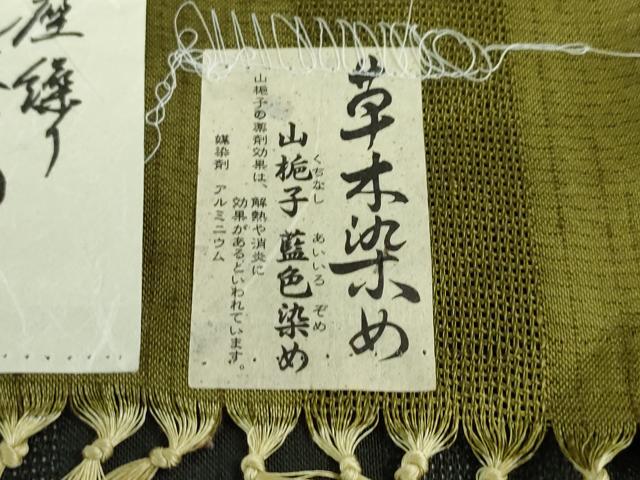 草木染め
山梔子 藍色染め
くちなし あいいろ ぞめ
山梔子の薬剤効果は、解熱や消炎に
効果があるといわれています。
媒染剤 アルミニウム
座繰り